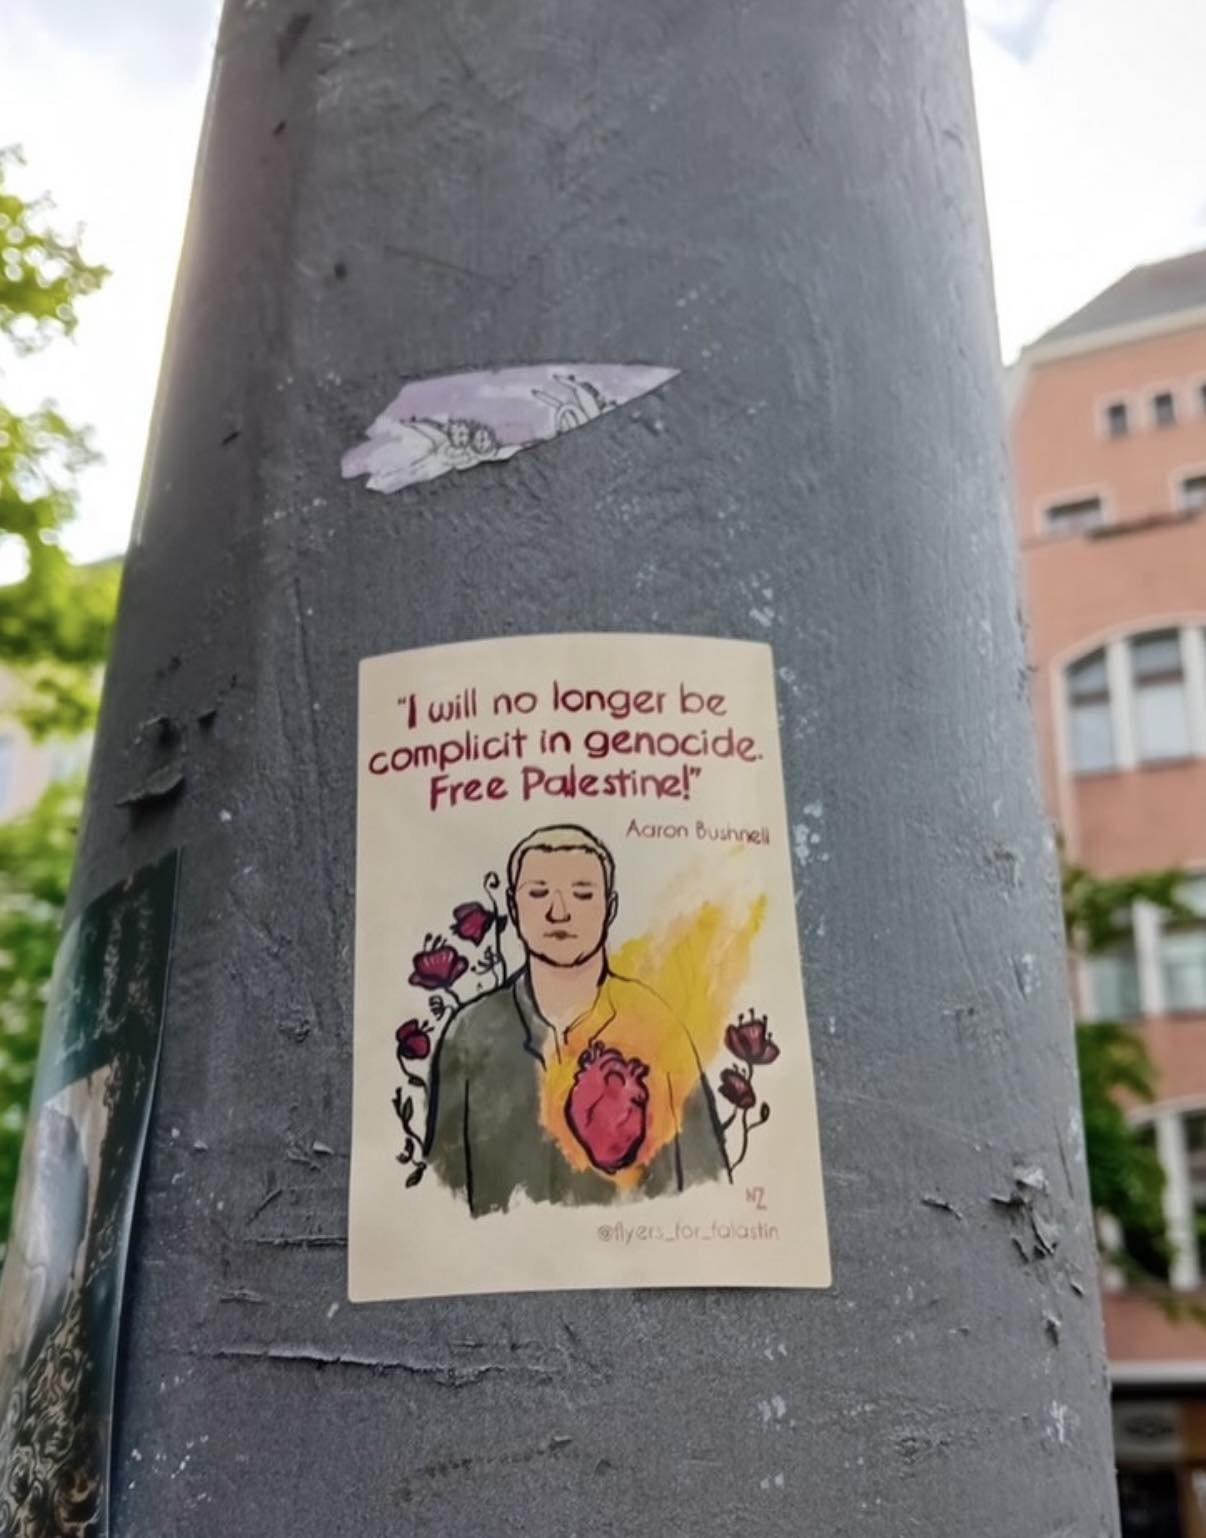 “I will no longer be
complicit in genocide.
Free Palestine!”
Aaron Bushnell
NZ
@flyers_for_falastin